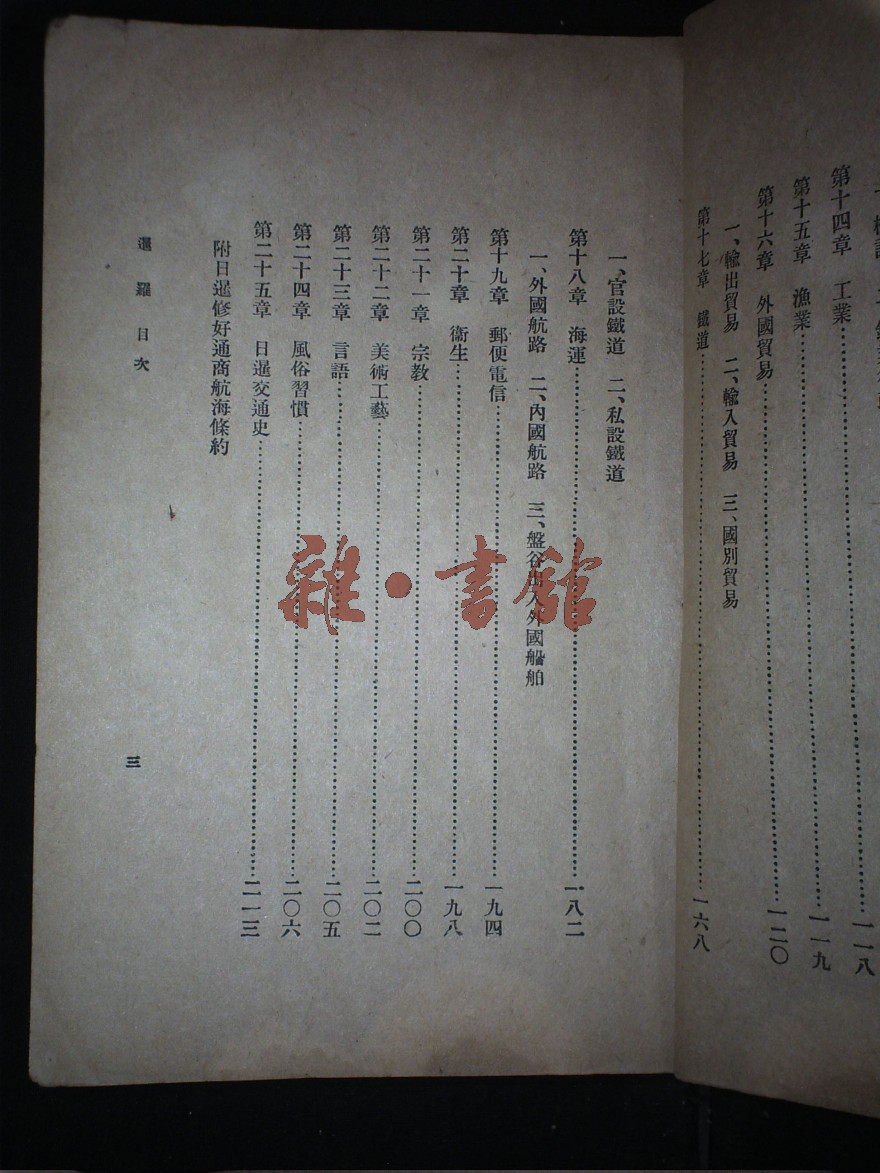 第十四章　工業……一一八
第十五章　漁業……一一九
第十六章　外國貿易……一二〇
一、輸出貿易　二、輸入貿易　三、國別貿易
第十七章　鐵道……一六八
一、官設鐵道　二、私設鐵道
第十八章　海運……一八二
一、外國航路　二、內國航路　三、盤谷出入外國船舶
第十九章　郵便電信……一九四
第二十章　衞生……一九八
第二十一章　宗教……二〇〇
第二十二章　美術工藝……二〇二
第二十三章　言語……二〇五
第二十四章　風俗習慣……二〇六
第二十五章　日暹交通史……二一三
附日暹修好通商航海條約
暹羅目次
三
雜·書館